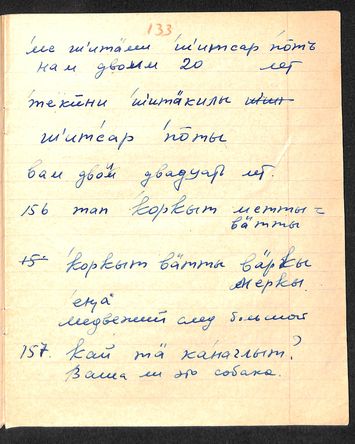 133
ме шитӓми шитсар потъ
нам двоим 20 лет
текини шитӓкилы
шитсар поты
вам двоим двадцать лет.
156 тап корқыт метты =
вӓтты
қорқыт вӓтты вӓрқы
меркы
еңӓ
медвежий след большой
157. Кай тӓ канаглыт?
Ваша ли это собака.